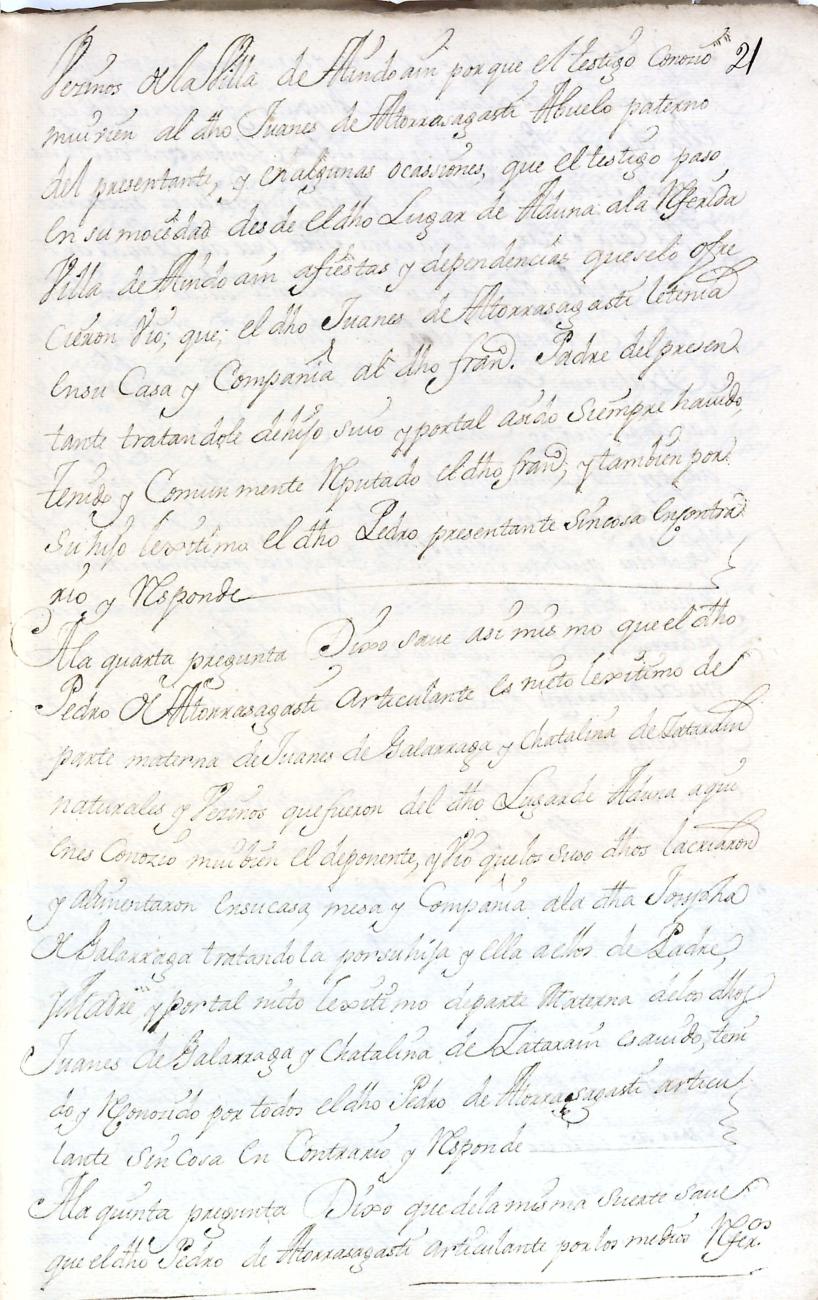 Vezinos de la Villa de Aindoain porque el testigo Conozio 21
mui vien al dho Juanes de Attorrasagasti Abuelo paterno
del presentante, y en algunas ocassiones, que el testigo paso
en su mocedad desde el dho Lugar de Aduna ala Referida
Villa de Aindoain afiestas y dependencias que selo ofre
cieron Vio; que; el dho Juanes de Attorrasagasti letenia
ensu Casa y Compañia al dho fran.co Padre del presen
tante tratandole de hijo suio y portal asido Siempre havido,
tenido y Comunmente Reputado el dho fran.co, y tambien por
su hijo lexitimo el dho Pedro presentante sin cosa encontra
rio y Responde
Ala quarta pregunta Dixo save asimismo que el dho
Pedro de Attorrasagasti articulante es nieto lexitimo de
parte materna de Juanes de Galarraga y Chatalina de Zatarain
naturales y Vezinos que fueron del dho Lugar de Aduna aqui
enes Conozio mui bien el deponente, y Vio que los suso dhos la criaron
y alimentaron ensu casa, mesa y Compañia ala dha Josepha
de Galarraga tratandola por su hija y ella aellos de Padre,
y Madre y por tal nieto lexitimo de parte Materna delos dhos
Juanes de Galarraga y Chatalina de Zatarain es auido, teni
do y Reconozido por todos el dho Pedro de Attorrasagasti articu
lante sin cosa en Contrario y Responde
Ala quinta pregunta Dixo que dela misma suerte save
que el dho Pedro de Attorrasagasti articulante por los medios Refer.dos